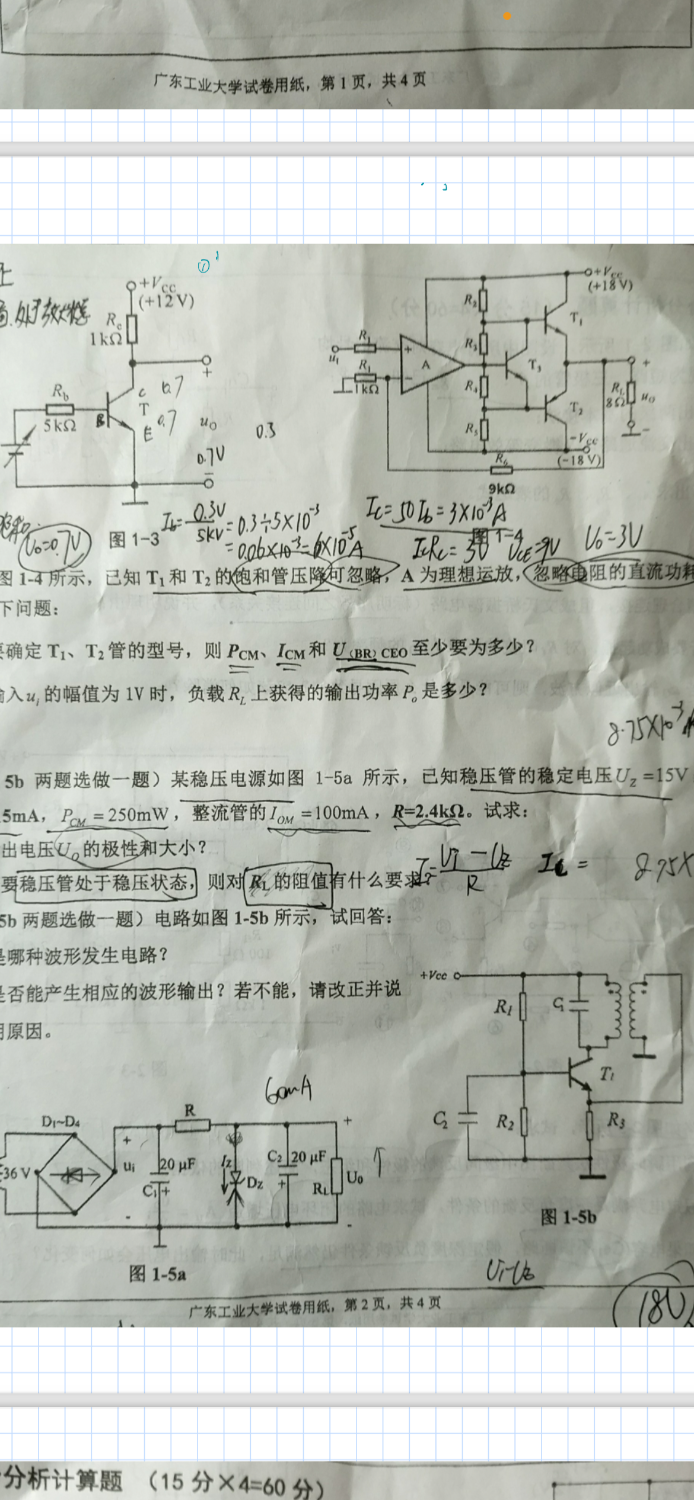 广东工业大学试卷用纸，第1页，共4页
①
+V_CC
(+12 V)
R_c
1kΩ
+
C 0.7
R_b
5kΩ
B
T
E 0.7
u_O
0.3
0.7V
−
图 1-3
U_O=0.7V
+V_CC
(+18 V)
R_2
T_1
R_1
u_I
R_1
1kΩ
+
−
A
R_3
T_3
R_4
T_2
R_5
R_L
8Ω
+
u_O
−
−V_CC
(−18 V)
R_6
9kΩ
I_b=0.3V/5kV=0.3÷5×10⁻³
=0.06×10⁻³=6×10⁻⁵A
I_C=50I_b=3×10⁻³A
图 1-4
I_CR_C=3V U_CE=9V
U_O=3V
图 1-4 所示，已知 T_1 和 T_2 的饱和管压降可忽略，A 为理想运放，忽略电阻的直流功耗
下问题：
要确定 T_1、T_2 管的型号，则 P_CM、I_CM 和 U_(BR)CEO 至少要为多少？
输入 u_i 的幅值为 1V 时，负载 R_L 上获得的输出功率 P_o 是多少？
8.75×10⁻³
5b 两题选做一题）某稳压电源如图 1-5a 所示，已知稳压管的稳定电压 U_Z =15V
5mA，P_CM = 250mW，整流管的 I_OM =100mA，R=2.4kΩ。试求：
出电压 U_O 的极性和大小？
要稳压管处于稳压状态，则对 R_L 的阻值有什么要求？
I=(U_I −U_Z)/R
8.75×
5b 两题选做一题）电路如图 1-5b 所示，试回答：
是哪种波形发生电路？
是否能产生相应的波形输出？若不能，请改正并说
明原因。
+Vcc
R_1
C_1
T_1
C_2
R_2
R_3
图 1-5b
60mA
D_1~D_4
36 V
+
u_i
−
20 μF
C_1
+
R
I_Z
D_Z
C_2
20 μF
+
R_L
+
U_O
−
图 1-5a
U_I-U_Z
广东工业大学试卷用纸，第 2 页，共 4 页
18V
分析计算题 （15 分×4=60 分）